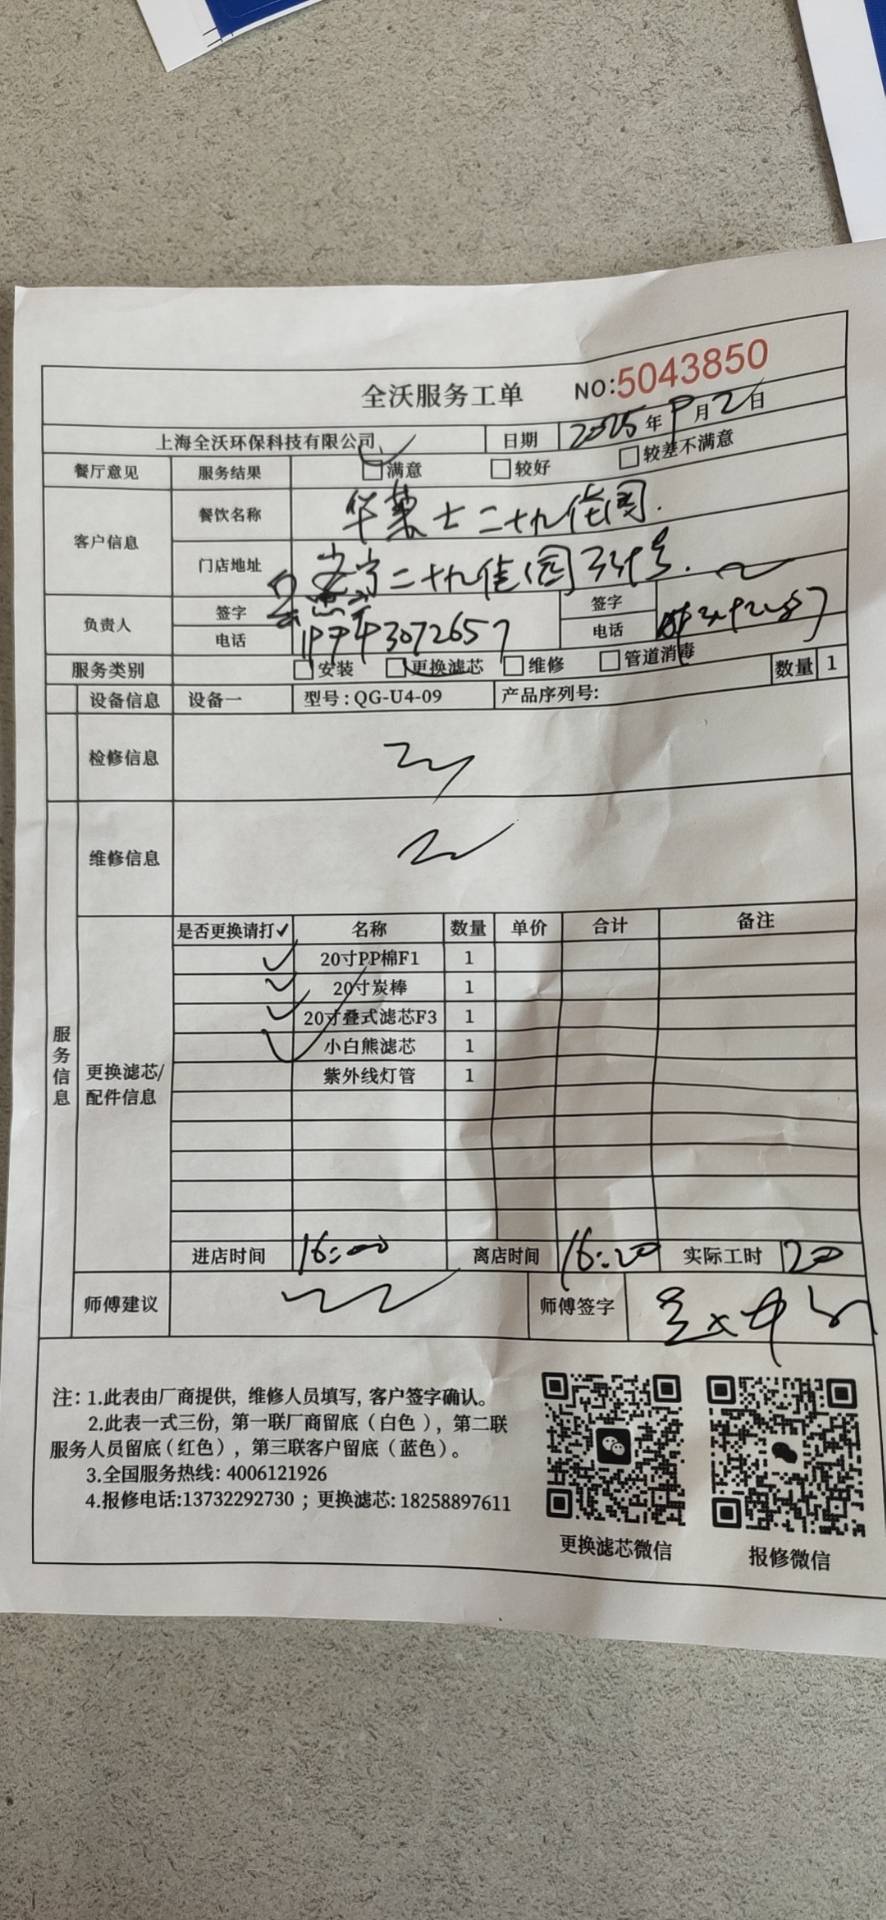 全沃服务工单 NO:5043850
上海全沃环保科技有限公司 日期 2025年9月2日
餐厅意见 服务结果 满意 较好 较差不满意
客户信息 餐饮名称 华莱士二十九佳园.
门店地址 二十九佳园
负责人 签字 签字
电话 电话
服务类别 安装 更换滤芯 维修 管道消毒 数量 1
设备信息 设备一 型号:QG-U4-09 产品序列号:
检修信息
维修信息
服务信息
更换滤芯/配件信息
是否更换请打✓ 名称 数量 单价 合计 备注
✓ 20寸PP棉F1 1
✓ 20寸炭棒 1
✓ 20寸叠式滤芯F3 1
✓ 小白熊滤芯 1
紫外线灯管 1
进店时间 16:00 离店时间 16:20 实际工时 20
师傅建议 师傅签字
注：1.此表由厂商提供，维修人员填写，客户签字确认。
2.此表一式三份，第一联厂商留底（白色），第二联
服务人员留底（红色），第三联客户留底（蓝色）。
3.全国服务热线：4006121926
4.报修电话:13732292730；更换滤芯：18258897611
更换滤芯微信 报修微信